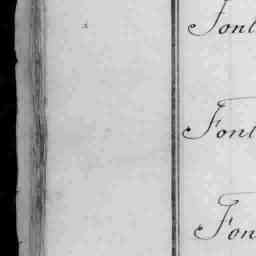 Font
Font
Fon